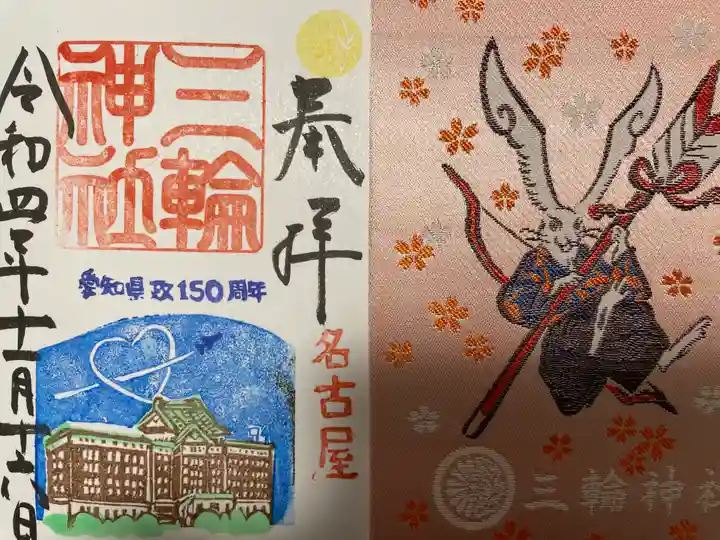 奉拝
三輪
神社
愛知県政150周年
名古屋
令和四年十一月十六日
三輪神社